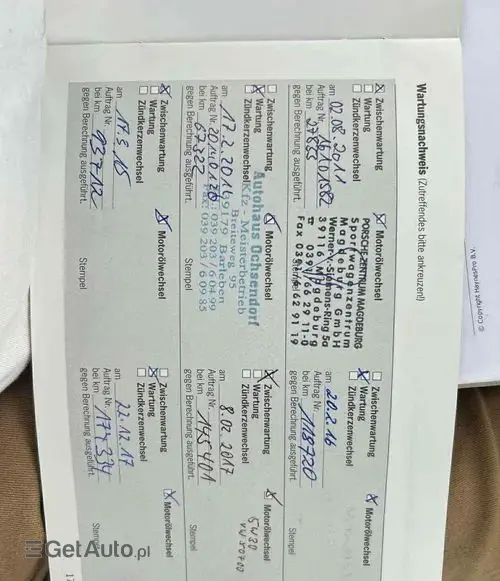 © Copyright HerniaPro B.V.
Wartungsnachweis (Zutreffendes bitte ankreuzen!)
Zwischenwartung
Wartung
Zündkerzenwechsel
Motorölwechsel
am 02.08.2011
Auftrag Nr.
bei km 27853
gegen Berechnung ausgeführt.
PORSCHE ZENTRUM MAGDEBURG
Sportwagenzentrum
Magdeburg GmbH
Werner-v.-Siemens-Ring 5a
39116 Magdeburg
Zwischenwartung
Wartung
Zündkerzenwechsel
Motorölwechsel
am 20.2.16
Auftrag Nr.
bei km 118720
gegen Berechnung ausgeführt.
Stempel
Zwischenwartung
Wartung
Zündkerzenwechsel
Motorölwechsel
am 17.2.2014
Auftrag Nr.
bei km 67322
gegen Berechnung ausgeführt.
Autohaus Ochsendorf
Kfz - Meisterbetrieb
Breiteweg 95
39179 Barleben
Fax: 039 203 / 6 09 85
Zwischenwartung
Wartung
Zündkerzenwechsel
Motorölwechsel
5W30
VW 50700
am 8.02.2017
Auftrag Nr.
bei km 145401
gegen Berechnung ausgeführt.
Stempel
Zwischenwartung
Wartung
Zündkerzenwechsel
Motorölwechsel
am 17.3.15
Auftrag Nr.
bei km
gegen Berechnung ausgeführt.
Stempel
Zwischenwartung
Wartung
Zündkerzenwechsel
Motorölwechsel
am 22.12.17
Auftrag Nr.
bei km 174334
gegen Berechnung ausgeführt.
Stempel
GetAuto.pl